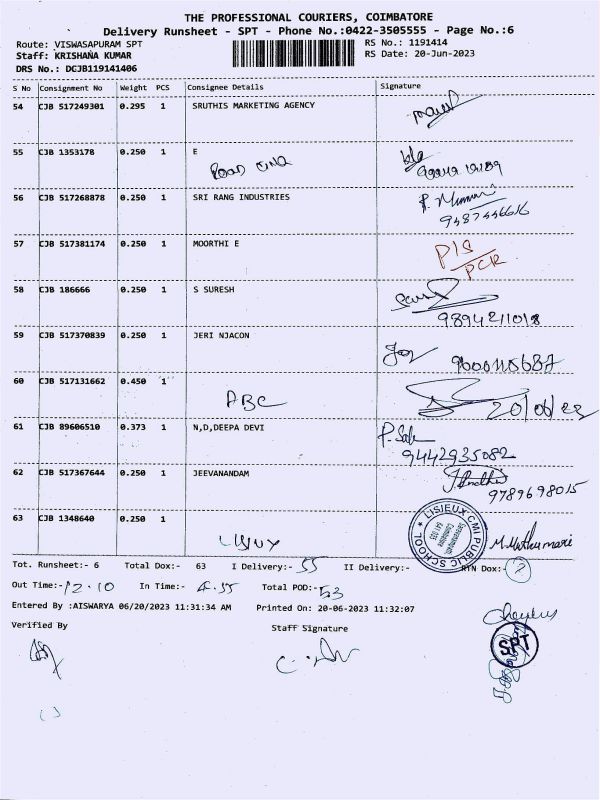 THE PROFESSIONAL COURIERS, COIMBATORE
Delivery Runsheet - SPT - Phone No.:0422-3505555 - Page No.:6
Route: VISWASAPURAM SPT RS No.: 1191414
Staff: KRISHANA KUMAR RS Date: 20-Jun-2023
DRS No.: DCJB119141406
S No Consignment No Weight PCS Consignee Details Signature
54 CJB 517249301 0.295 1 SRUTHIS MARKETING AGENCY
55 CJB 1353178 0.250 1 E
56 CJB 517268878 0.250 1 SRI RANG INDUSTRIES
9487446616
57 CJB 517381174 0.250 1 MOORTHI E
PIS
PCR
58 CJB 186666 0.250 1 S SURESH
9894211018
59 CJB 517370839 0.250 1 JERI NJACON
Joy 9600115687
60 CJB 517131662 0.450 1
ABC 20/06/23
61 CJB 89606510 0.373 1 N,D,DEEPA DEVI
9442935082
62 CJB 517367644 0.250 1 JEEVANANDAM
9789698015
63 CJB 1348640 0.250 1
LISIUX M.Muthumari
LISIEUX CMI PUBLIC SCHOOL
Tot. Runsheet:- 6 Total Dox:- 63 I Delivery:- 55 II Delivery:- RTN Dox:- 2
Out Time:- 12.10 In Time:- 4.55 Total POD:- 53
Entered By :AISWARYA 06/20/2023 11:31:34 AM Printed On: 20-06-2023 11:32:07
Verified By Staff Signature
SPT